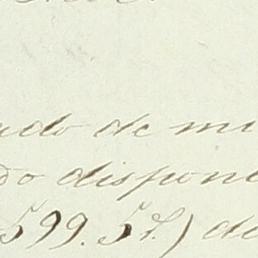 ado de mi
do dispone
599.57.) de